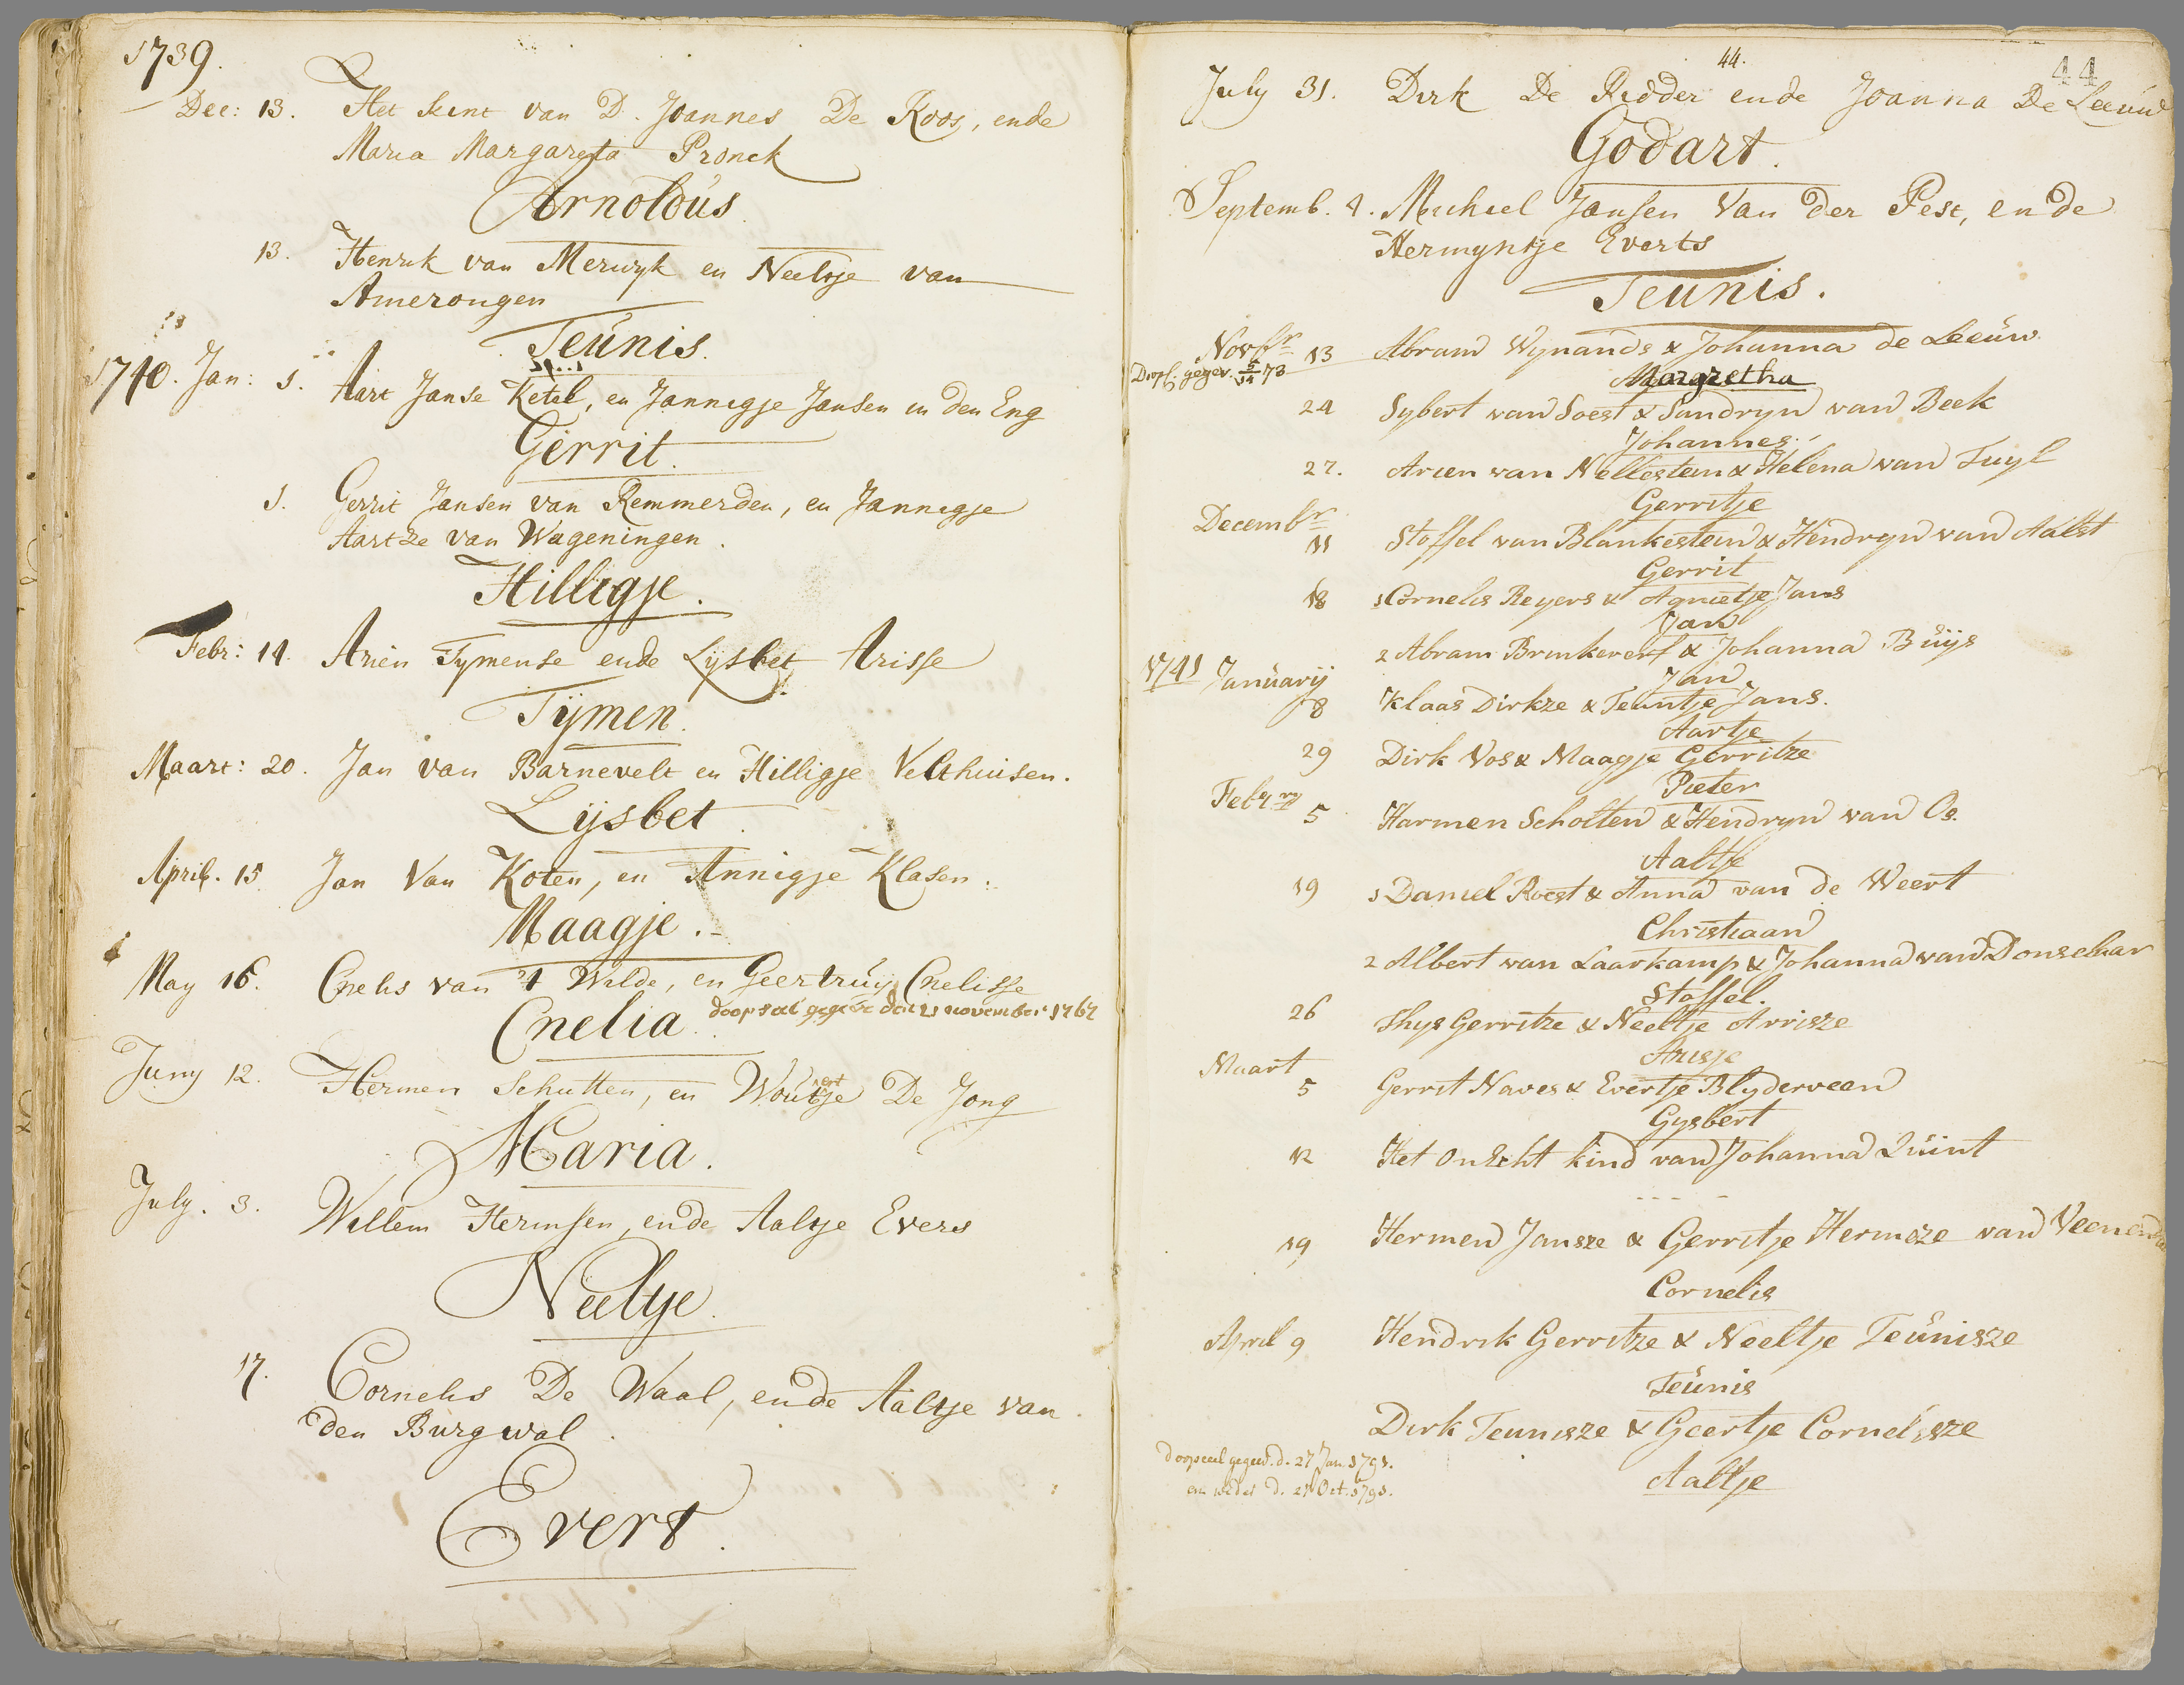 1739.
Dec: 13. Het kint van D. Joannes De Roos, ende
Maria Margareta Pronck
Arnoldús.
13. Henrik van Merwyk en Neeltje van
Amerongen
Teúnis.
1740. Jan: 1. Aart Janse Ketel, en Jannigje Jansen in den Eng
Gerrit.
1. Gerrit Jansen van Remmerden, en Jannigje
Aartze van Wageningen.
Hilligje.
Febr: 14. Arien Tymense ende Lijsbet Arisse
Tijmen.
Maart: 20. Jan van Barnevelt en Hilligje Velthuisen.
Lijsbet.
April. 15 Jan Van Koten, en Annigje Klasen.
Maagje.
May 16. Cnelis van 't Wilde, en Geertruij Cnelisse
Cnelia. doopseel gegeve den 21 november 1767
Juny 12. Hermen Schutten, en Woutje De Jong
Maria.
July. 3. Willem Hermsen, ende Aaltje Evers
Neeltje.
17. Cornelis De Waal, ende Aaltje van
den Burgwal.
Evert.
44.
44
July 31. Dirk De Ridder ende Joanna De Leeúw
Godart.
Septemb. 4. Michiel Jansen Van der Pest, ende
Hermyntje Everts
Teunis.
Novbr 13 Abram Wynands & Johanna de Leeúw
Doopc. gegev. 5/14 73
Margretha
24 Sybert van Soest & Sandryn van Beek
Johannes.
27. Arien van Nellestein & Helena van Tuyl
Gerritje
Decembr
11 Stoffel van Blankestein & Hendryn van Aalst
Gerrit
18 1 Cornelis Reyers & Agnietje Jans
Jan
2 Abram Brinkereef & Johanna Búijs
Jan
1741 Januarij
8 Klaas Dirkze & Teuntje Jans.
Aartje
29 Dirk Vos & Maagje Gerritze
Pieter
Febrry 5 Harmen Scholten & Hendryn van Os.
Aaltje
19 1 Daniel Roest & Anna van de Weert
Christiaan
2 Albert van Laarkamp & Johanna van Donselaar
Stoffel.
26 Thys Gerritze & Neeltje Arrisze
Arisje
Maart
5 Gerrit Naves & Evertje Blyderveen
Gysbert
12 Het onecht kind van Johanna Quint
- - - -
19 Hermen Jansze & Gerritje Hermsze van Veenend
Cornelis
April 9 Hendrik Gerritze & Neeltje Teúnisze
Teúnis
Dirk Teunisze & Geertje Cornelisze
doopceel gegeed. d. 27 Jan 1791.
en weder d. 21 Oct. 1791.
Aaltje